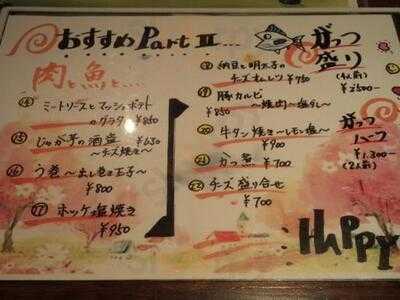 おすすめPart II...
肉と魚と...
⑭ ミートソースとマッシュポテト
のグラタン ¥850
⑮ じゃが芋の酒盗 ¥650
〜チーズ焼き〜
⑯ う巻〜出し巻き玉子〜
¥800
⑰ ホッケ塩焼き
¥950
⑱ 納豆と明太子の
チーズオムレツ ¥750
⑲ 豚カルビ
¥850 〜焼肉〜塩ダレ〜
⑳ 牛タン焼き〜レモン塩〜
¥900
㉑ かつ煮 ¥700
㉒ チーズ盛り合せ
¥700
がっつ
盛り
(4人前)
¥2500-
がっつ
ハーフ
¥1,300-
(2人前)
HAPPY